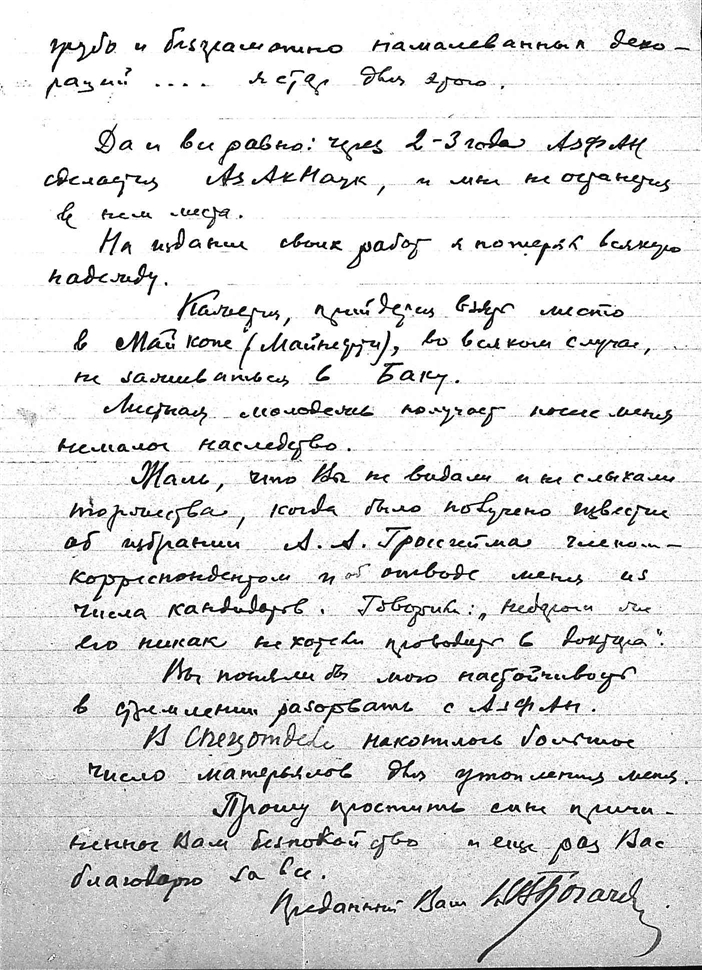 грубо и безграмотно намалеванных деко-
раций .... я стар для этого.
Да и все равно: через 2-3 года АзФАН
сделается АзАкНаук, и мне не останется
в нем места.
На издание своих работ я потерял всякую
надежду.
Кажется, прийдется взять место
в Майкопе (Майнефти), во всяком случае,
не заживаться в Баку.
молодежь получает после меня
немалое наследство.
Жаль, что Вы не видали и не слыхали
торжества, когда было получено известие
об избрании А. А. Гроссгейма членом-
корреспондентом и об отводе меня из
числа кандидатов. Говорили: „недаром
его никак не хотели проводить в доктора".
Вы поняли бы мою настойчивость
в стремлении разорвать с АзФАН.
В Спецотделе накопилось большое
число матерьялов для утопления меня.
Прошу простить мне причи-
ненное Вам безпокойство и еще раз Вас
благодарю за все.
Преданный Ваш Богачев